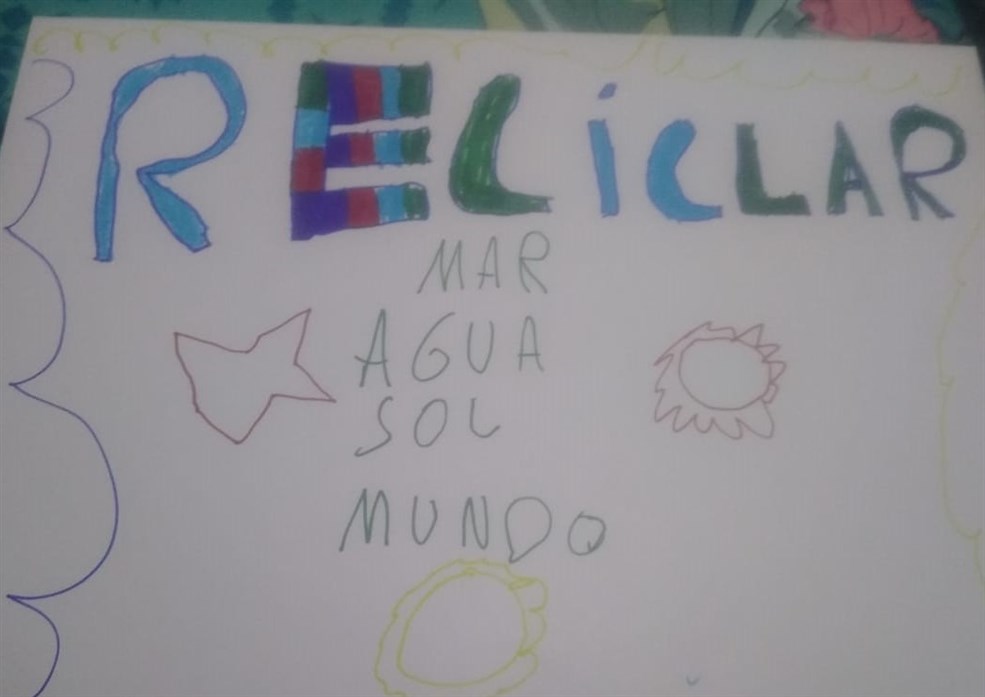 RECiCLAR
MAR
AGUA
SOL
MUNDO